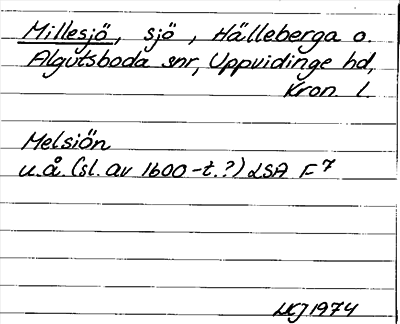 Millesjö, sjö, Hälleberga o.
Algutsboda snr, Uppvidinge hd,
Kron. l.
Melsiön
u.å. (sl. av 1600-t.?) LSA F7
1974